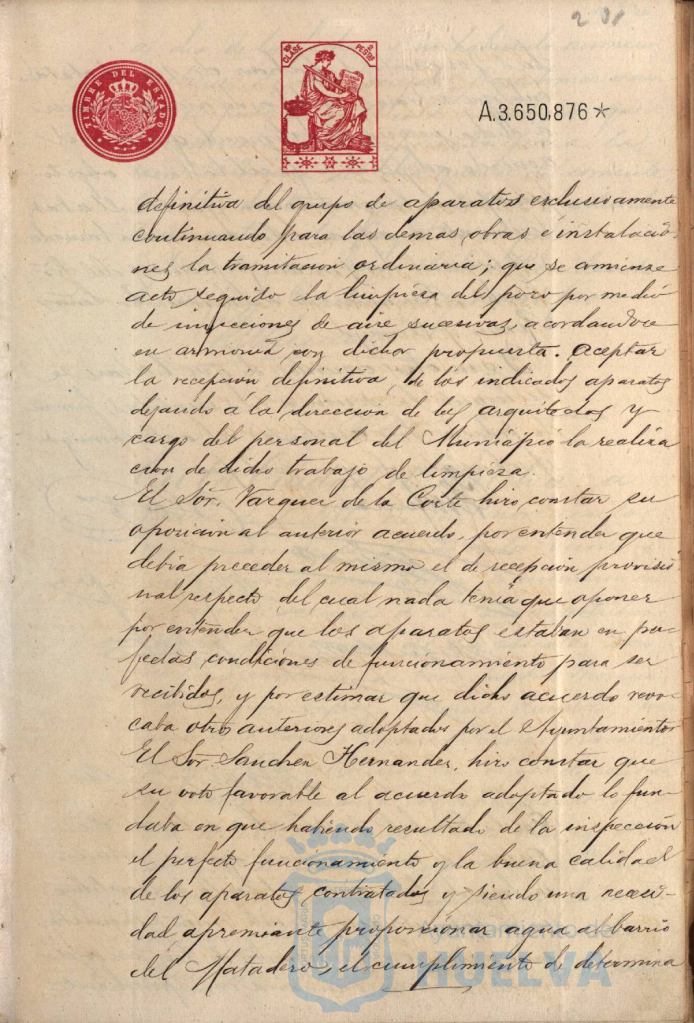 2 31
TIMBRE DEL ESTADO
10ª CLASE 2 PESTAS
A.3.650,876*
definitiva del grupo de aparatos esclusivamente
continuando para las demas obras e instalacio-
nes la tramitacion ordinaria; que se comienze
acto seguido la limpieza del pozo por medio
de inyecciones de aire sucesivas, acordandose
en armonia con dichor propuesta. aceptar
la recepción definitiva, de los indicados aparatos
dejando á la direccion de los arquitectos y
cargo del personal del Municipio la realiza
cion de dicho trabajo de limpieza.
El Sor. Vazquez de la Corte hizo constar su
oposicion al anterior acuerdo, por entender que
debia preceder al mismo el de recepción provisio
nal respecto del cual nada tenia que oponer
por entender que los aparatos estaban en per-
fectas condiciones de funcionamiento para ser
recibidos, y por estimar que dicho acuerdo revo-
caba otros anteriores adoptados por el Ayuntamiento
El Sor. Sanchez Hernandez, hizo constar que
su voto favorable al acuerdo adoptado lo fun-
daba en que habiendo resultado de la inspección
el perfecto funcionamiento y la buena calidad
de los aparatos contratados y siendo una necesi-
dad apremiante proporcionar agua al barrio
del Matadero, el cumplimiento de determina
Ayuntamiento de
HUELVA